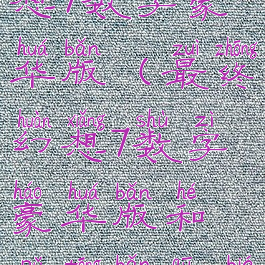 想7数字豪
huá bǎn zuì zhōng
华版（最终
huàn xiǎng shù zì
幻想7数字
háo huá bǎn hé
豪华版和